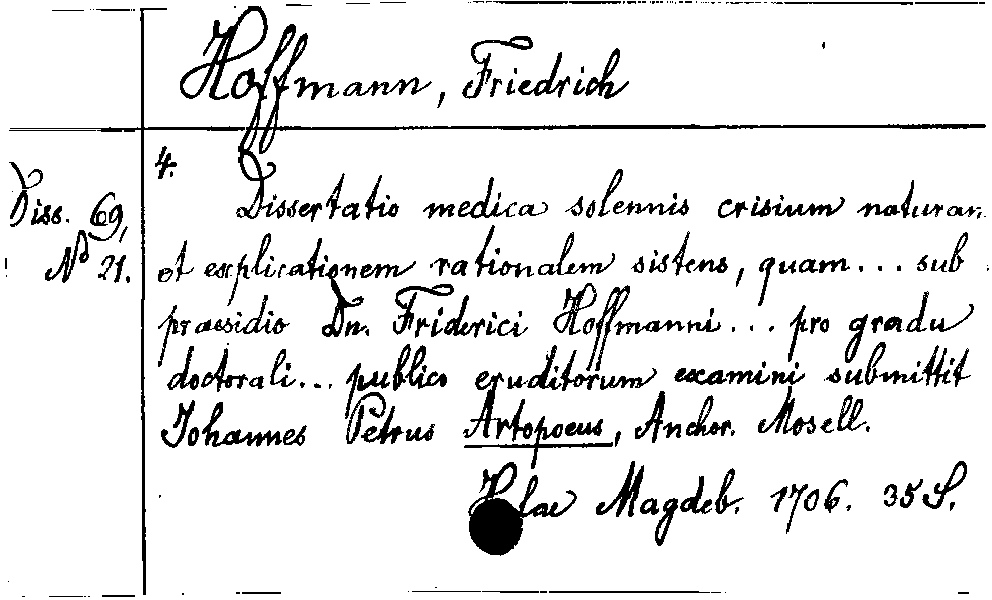 Hoffmann, Friedrich
4.
Diss. 69,
No 21.
Dissertatio medica solennis crisium naturam
et explicationem rationalem sistens, quam... sub
praesidio Dn. Friderici Hoffmanni... pro gradu
doctorali... publico eruditorum examini submittit
Johannes Petrus Artopoeus, Anchor. Mosell.
Magdeb. 1706. 35 S.